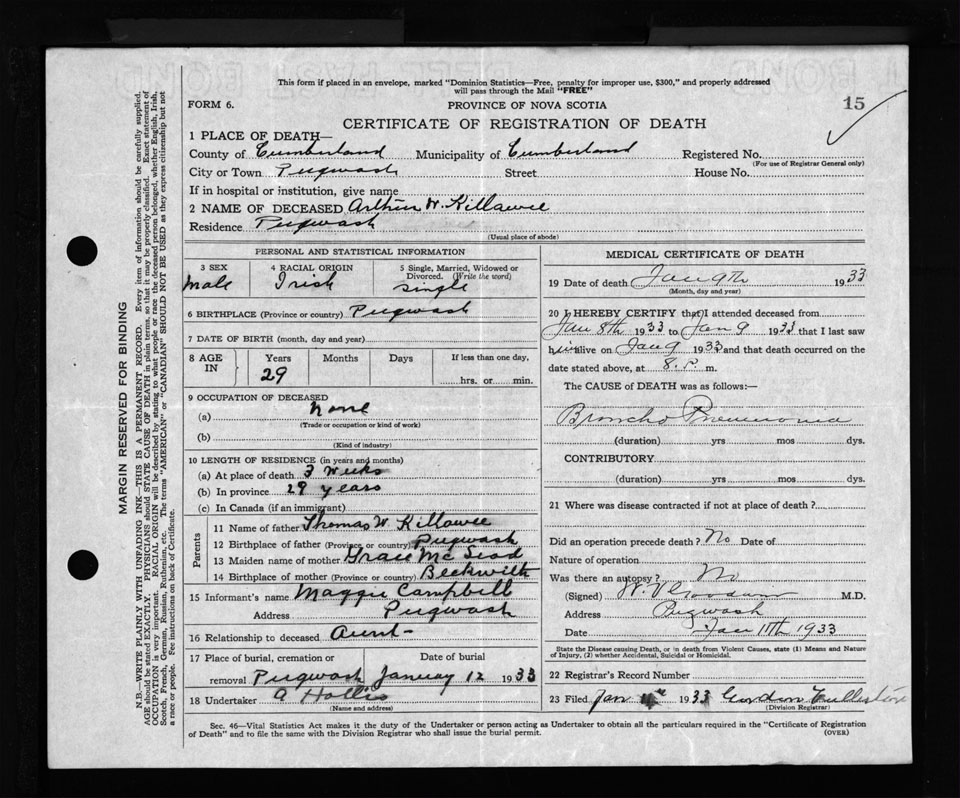 This form if placed in an envelope, marked "Dominion Statistics—Free, penalty for improper use, $300," and properly addressed
will pass through the Mail "FREE"
FORM 6.
PROVINCE OF NOVA SCOTIA
15
CERTIFICATE OF REGISTRATION OF DEATH
1 PLACE OF DEATH—
County of Cumberland Municipality of Cumberland Registered No.
(For use of Registrar General only)
City or Town Pugwash Street House No.
If in hospital or institution, give name
2 NAME OF DECEASED Arthur W. Killawee
Residence Pugwash
(Usual place of abode)
PERSONAL AND STATISTICAL INFORMATION
3 SEX 4 RACIAL ORIGIN 5 Single, Married, Widowed or
Divorced. (Write the word)
Male Irish Single
6 BIRTHPLACE (Province or country) Pugwash
7 DATE OF BIRTH (month, day and year)
8 AGE IN Years Months Days If less than one day,
29 hrs. or min.
9 OCCUPATION OF DECEASED
(a) None
(Trade or occupation or kind of work)
(b)
(Kind of industry)
10 LENGTH OF RESIDENCE (in years and months)
(a) At place of death 3 weeks
(b) In province 29 years
(c) In Canada (if an immigrant)
Parents
11 Name of father Thomas W Killawee
12 Birthplace of father (Province or country) Pugwash
13 Maiden name of mother Grace Mc
14 Birthplace of mother (Province or country) Beckwith
15 Informant's name Maggie Campbell
Address Pugwash
16 Relationship to deceased Aunt
17 Place of burial, cremation or Date of burial
removal Pugwash January 12 1933
18 Undertaker A Hollis
(Name and address)
MEDICAL CERTIFICATE OF DEATH
19 Date of death Jan 9th 1933
(Month, day and year)
20 I HEREBY CERTIFY that I attended deceased from
Jan 8th 1933 to Jan 9 1933 that I last saw
him alive on Jan 9 1933 and that death occurred on the
date stated above, at 8. P. m.
The CAUSE of DEATH was as follows:—
Broncho Pneumonia
(duration) yrs mos dys.
CONTRIBUTORY
(duration) yrs mos dys.
21 Where was disease contracted if not at place of death?
Did an operation precede death? No Date of
Nature of operation
Was there an autopsy? No
(Signed) W. V Goodwin M.D.
Address Pugwash
Date Jan 11th 1933
State the Disease causing Death, or in death from Violent Causes, state (1) Means and Nature
of Injury, (2) whether Accidental, Suicidal or Homicidal.
22 Registrar's Record Number
23 Filed Jan 1933 Gordon
(Division Registrar)
Sec. 46—Vital Statistics Act makes it the duty of the Undertaker or person acting as Undertaker to obtain all the particulars required in the "Certificate of Registration
of Death" and to file the same with the Division Registrar who shall issue the burial permit.
(OVER)
MARGIN RESERVED FOR BINDING
N.B—WRITE PLAINLY WITH UNFADING INK—THIS IS A PERMANENT RECORD. Every item of information should be carefully supplied.
AGE should be stated EXACTLY. PHYSICIANS should STATE CAUSE OF DEATH in plain terms, so that it may be properly classified. Exact statement of
OCCUPATION is very important. RACIAL ORIGIN will be described by stating to what people or race the deceased person belonged, whether English, Irish,
Scotch, French, German, Russian, Ruthenian, etc. The terms "AMERICAN" or "CANADIAN" SHOULD NOT BE USED as they express citizenship but not
a race or people. See instructions on back of Certificate.